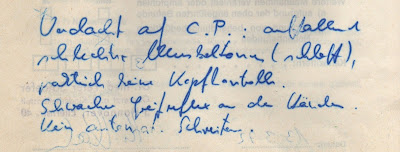 Verdacht auf C.P.: auffallend
schlechter Muskeltonus (schlaff),
praktisch keine Kopfkontrolle.
Schwacher Greifreflex an den Händen.
Kein automat. Schreiten.